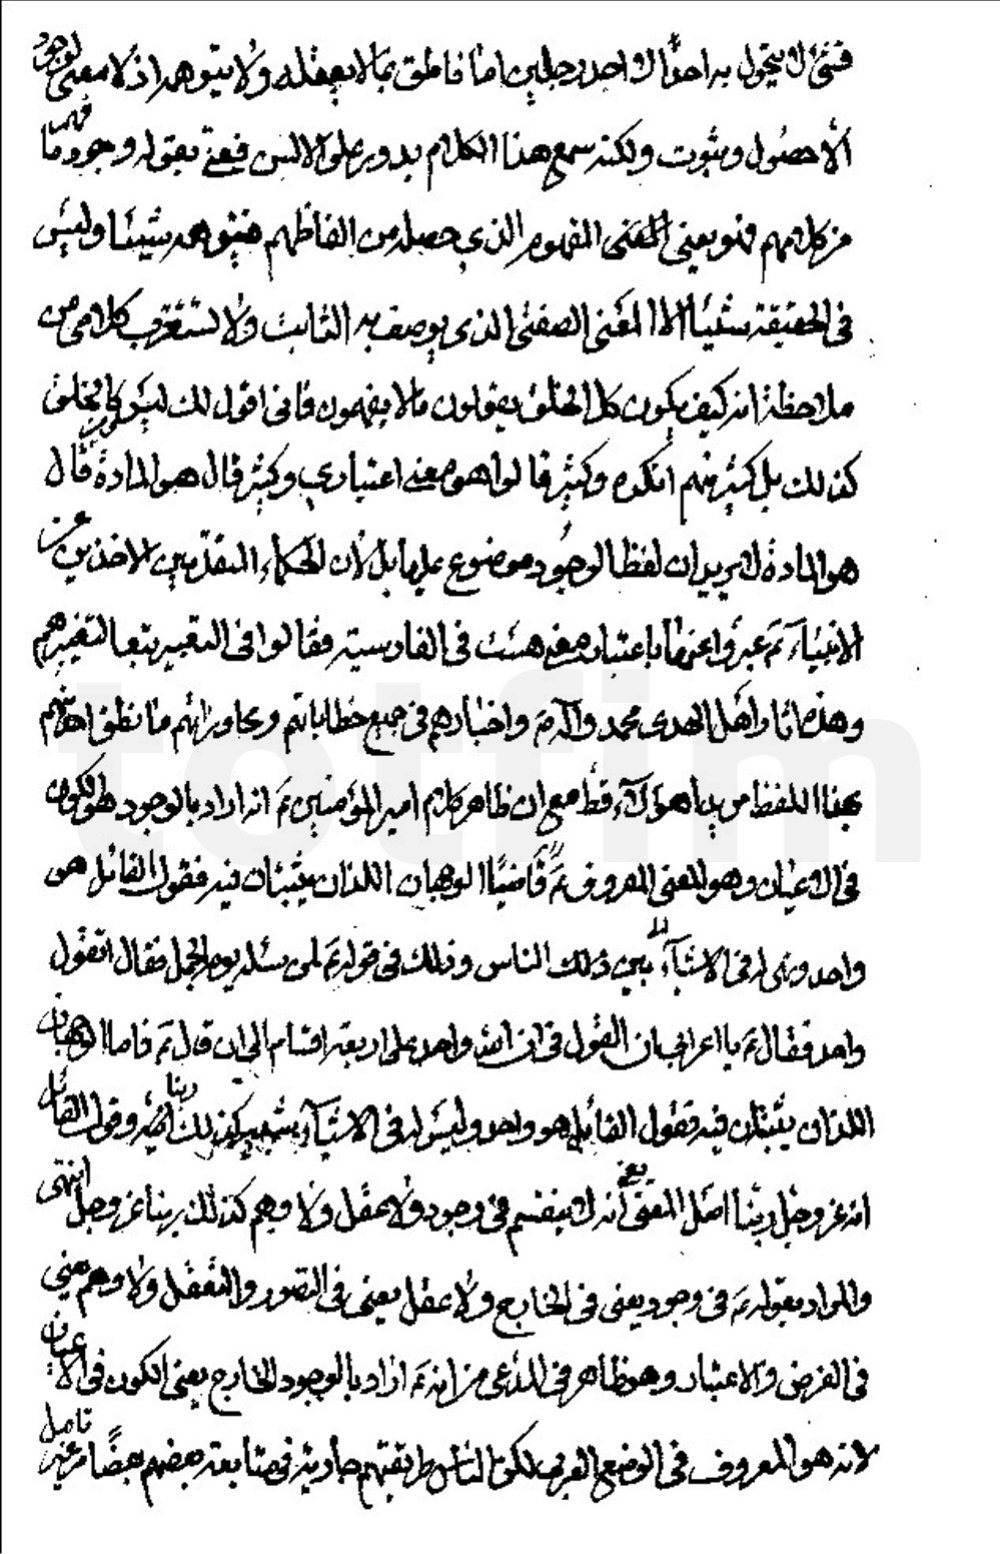 احد رجلين اما ناطق بما لا يعقله ولا يتوهمه اذ لا معنى لوجود
الا حصول وثبوت ولكنه سمع هذا الكلام يدور على الالسن فيعنى بقوله وجود ما فهم
من كلامهم فهو يعنى المعنى المفهوم الذي حصله من الفاظهم فيتوهمه شيئا وليس
فى الحقيقة شيئا الا المعنى الصفتى الذى يوصف به الثابت ولا تستغرب كلامى من
ملاحظة انه كيف يكون كل الخلق يقولون ما لا يفهمون فانى اقول لك ليس كل الخلق
كذلك بل كثير منهم انكره وكثير قالوا هو معنى اعتباري وكثير قال هو المادة قال
هو المادة لا يريد ان لفظ الوجود موضوع عليها بل لأن الحكماء المتقدمين الاخذين عن
الانبياء ع عبروا عنها باعتبار معنى هست فى الفارسية فقالوا فى التعبير تبعا لتعبيرهم
وهذه اثار اهل الهدى محمد وآله ص واخبارهم فى جميع خطاباتهم ومحاوراتهم ما نطق احد منهم
بهذا اللفظ مريدا هؤلاء قط مع ان ظاهر كلام امير المؤمنين ع انه اراد بالوجود هو الكون
فى الاعيان وهو المعنى المعروف ع فاما الوجهان اللذان يثبتان فيه فقول القائل هو
واحد وليس له فى الاشياء بين ذلك الناس وذلك فى قوله ع لمن سئله يوم الجمل فقال اتقول
واحد فقال ع يا اعرابى ان القول فى ان الله واحد على اربعة اقسام الى ان قال ع فاما الوجهان
اللذان يثبتان فيه فقول القائل هو واحد وليس له فى الاشياء شبيه كذلك ربنا وقول القائل
انه عز وجل ربنا احدى المعنى يعنى انه لا ينقسم فى وجود ولا عقل ولا وهم كذلك ربنا عز وجل انتهى
والمراد بقوله ع فى وجود يعنى فى الخارج ولا عقل يعنى فى التصور والتعقل ولا وهم يعنى
فى الفرض والاعتبار وهو ظاهر فى المدعى من انه ع اراد بالوجود الخارج يعنى الكون فى الاعيان
لانه هو المعروف فى الوضع العربى لكن الناس طريقتهم جارية فى متابعة بعضهم بعضا من غير تامل
totfim